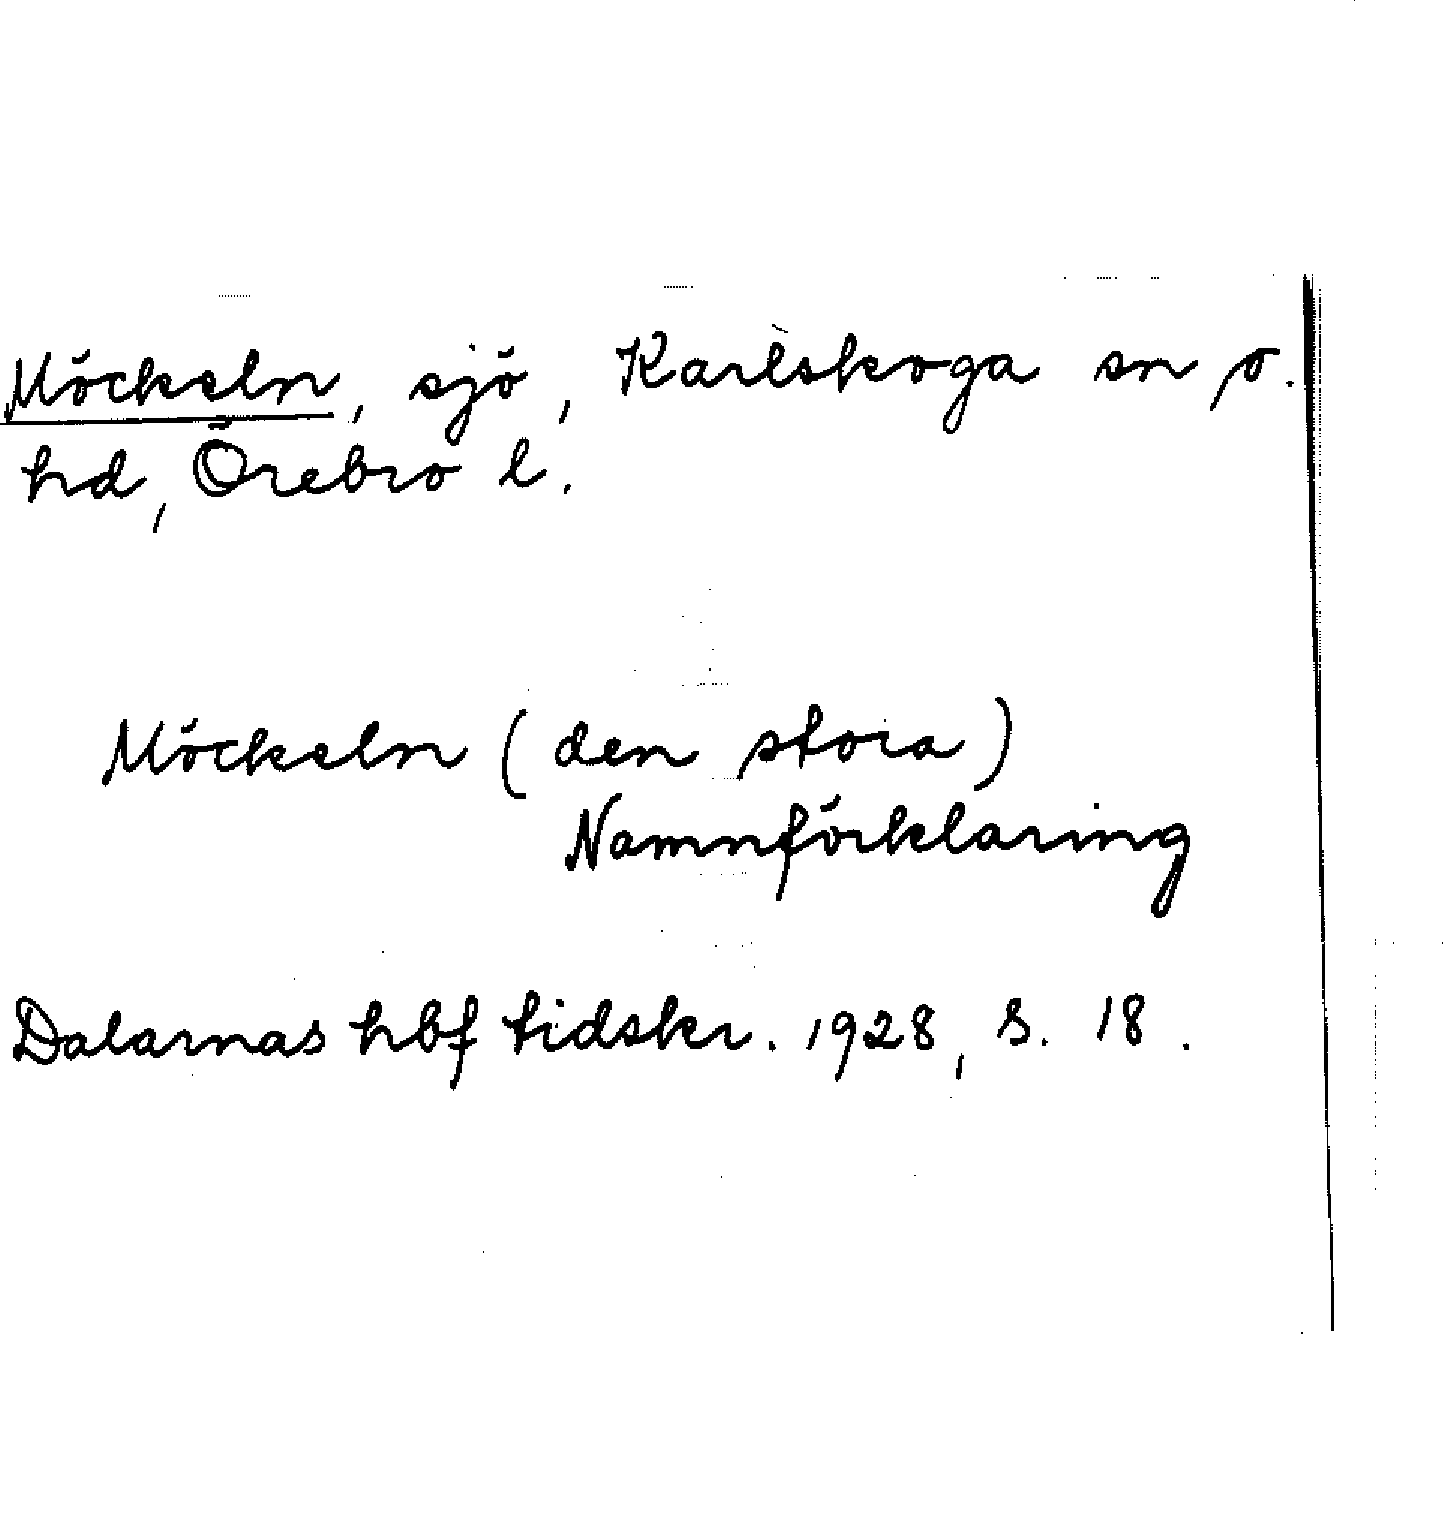 Möckeln, sjö, Karlskoga sn o.
hd, Örebro l.
Möckeln (den stora)
Namnförklaring
Dalarnas hbf tidskr. 1928, s. 18.